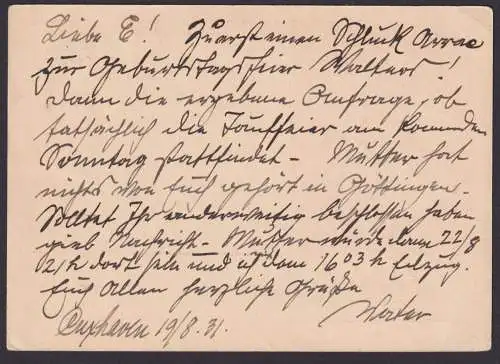 Liebe E! Zuerst einen Schluck Arrac
zur Geburtstagsfeier Walters!
Dann die ergebene Anfrage, ob
tatsächlich die Tauffeier am kommenden
Sonntag stattfindet – Mutter hat
nichts von Euch gehört in Göttingen –
Solltet Ihr anderweitig beschlossen haben
gieb Nachricht – Mutter würde dann 22/8
21h dort sein und ich dann 1603 h Eilzug.
Euch Allen herzliche Grüße
Cuxhaven 19/8.31.